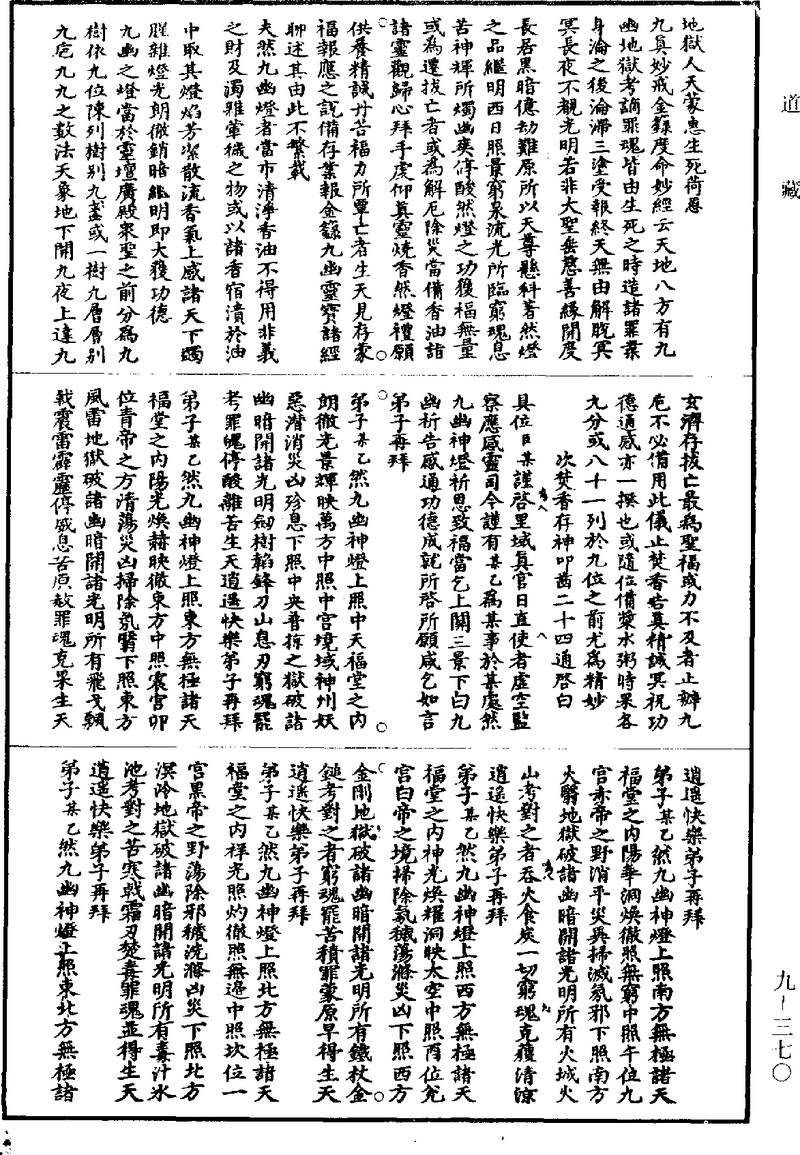 道藏
地獄人天蒙惠生死荷恩
九真妙戒金籙度命妙經云天地八方有九
幽地獄考謫罪魂皆由生死之時造諸罪業
身淪之後淪滯三塗受報終天無由解脫冥
冥長夜不覩光明若非大聖垂慈善緣開度
長居黑暗億劫難原所以天尊懸科著然燈
之品繼明西日照景窮泉流光所臨窮魂息
苦神輝所燭幽爽停酸然燈之功獲福無量
或為遷拔亡者或為解厄除災當備香油詣
諸靈觀歸心拜手虔仰真靈燒香然燈禮願
供養精誠丹苦福力所覃亡者生天見存蒙
福報應之說備存業報金籙九幽靈寶諸經
聊述其由此不繁載
夫然九幽燈者當市清淨香油不得用非義
之財及濁雜葷穢之物或以諸香宿漬於油
中取其燈焰芳潔散流香氣上感諸天下燭
腥雜燈光朗徹銷暗繼明即大獲功德
九幽之燈當於靈壇廣殿衆聖之前分為九
樹依九位陳列樹別九盞或一樹九層層別
九卮九九之數法天象地下開九夜上達九
玄濟存拔亡最為聖福或力不及者止辦九
卮不必備用此儀止焚香告真精誠冥祝功
德通感亦一揆也或隨位備漿水粥時果各
九分或八十一列於九位之前尤為精妙
次焚香存神叩齒二十四通啓白
具位臣某謹啓里域真官日直使者虛空監
察應感靈司今謹有某乙為某事於某處然
九幽神燈祈恩致福當乞上關三景下曰九
幽祈告感通功德成就所啓所願咸乞如言
弟子再拜
弟子某乙然九幽神燈上照中天福堂之內
朗徹光景輝映萬方中照中宮境域神州妖
惡潛消災凶殄息下照中央普掠之獄破諸
幽暗開諸光明劒樹韜鋒刀山息刃窮魂罷
考罪魄停酸離苦生天逍遥快樂弟子再拜
弟子某乙然九幽神燈上照東方無極諸天
福堂之內陽光煥赫映徹東方中照震宮卯
位青帝之方清蕩災凶掃除氛翳下照東方
風雷地獄破諸幽暗開諸光明所有飛戈飄
戟震雷霹靂停威息苦原赦罪魂克果生天
逍遥快樂弟子再拜
弟子某乙然九幽神燈上照南方無極諸天
福堂之內陽華洞煥徹照無窮中照午位九
宮赤帝之野消平災異掃滅氛邪下照南方
火翳地獄破諸幽暗開諸光明所有火城火
山考對之者吞火食炭一切窮魂克獲清涼
逍遥快樂弟子再拜
弟子某乙然九幽神燈上照西方無極諸天
福堂之內神光煥耀洞映太空中照酉位兌
宮白帝之境掃除氛穢蕩滌災凶下照西方
金剛地獄破諸幽暗開諸光明所有鐵杖金
鎚考對之者窮魂罷苦積罪蒙原早得生天
逍遥快樂弟子再拜
弟子某乙然九幽神燈上照北方無極諸天
福堂之內祥光照灼徹照無邊中照坎位一
宮黑帝之野蕩除邪穢洗滌凶災下照北方
溟泠地獄破諸幽暗開諸光明所有毒汁氷
池考對之苦寒戟霜刃焚毒罪魂並得生天
逍遥快樂弟子再拜
弟子某乙然九幽神燈上照東北方無極諸
九－三七〇